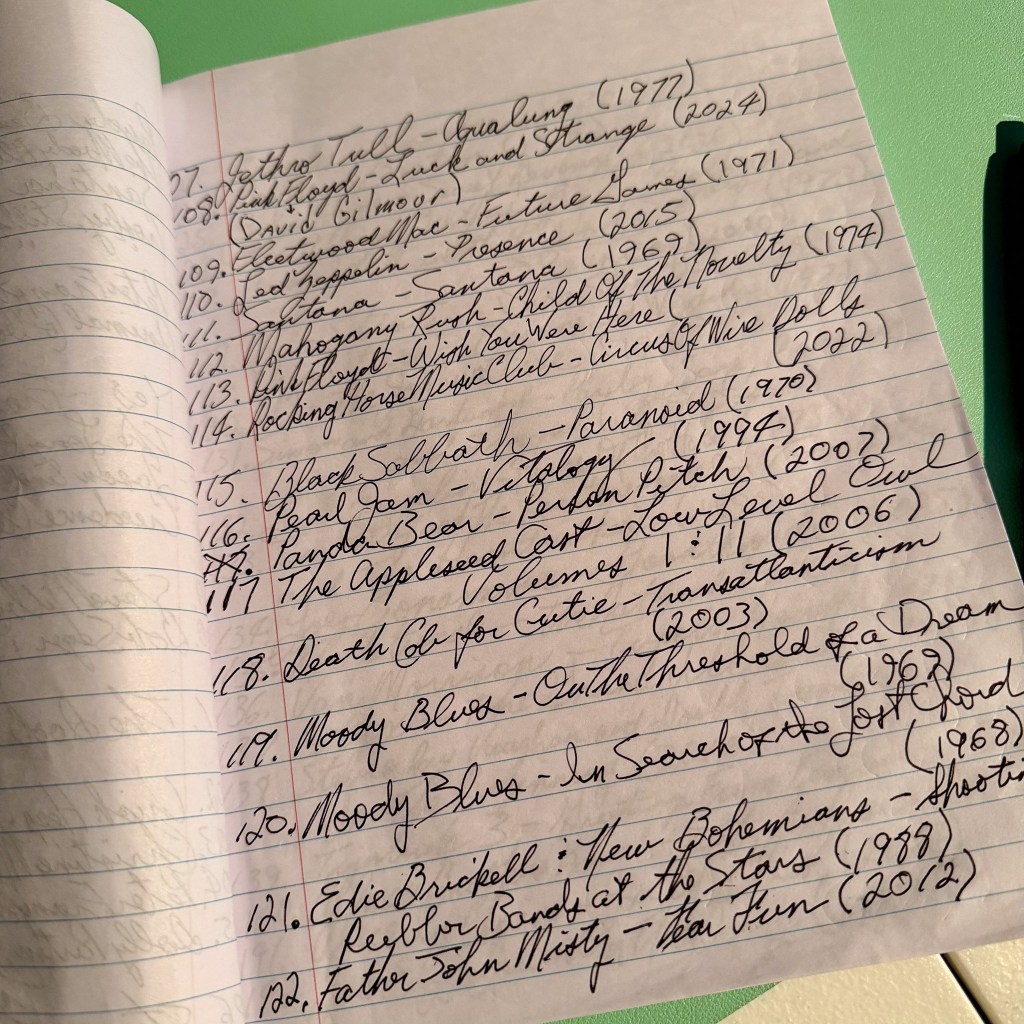 07. Jethro Tull - Aqualung (1977)
108. Pink Floyd - Luck and Strange (2024)
(David Gilmour)
109. Fleetwood Mac - Future Games (1971)
110. Led Zeppelin - Presence (2015)
111. Santana - Santana (1969)
112. Mahogany Rush - Child Of The Novelty (1974)
113. Pink Floyd - Wish You Were Here (
114. Rocking Horse Music Club - Circus Of Wire Dolls
(2022)
115. Black Sabbath - Paranoid (1970)
116. Pearl Jam - Vitology (1994)
Panda Bear - Person Pitch (2007)
117 The Appleseed Cast - Low Level Owl
Volumes I : II (2006)
118. Death Cab for Cutie - Transatlanticism
(2003)
119. Moody Blues - On the Threshold of a Dream
(1969)
120. Moody Blues - In Search of the Lost Chord
(1968)
121. Edie Brickell : New Bohemians - Shooti
Rubber Bands at the Stars (1988)
122. Father John Misty - Fear Fun (2012)